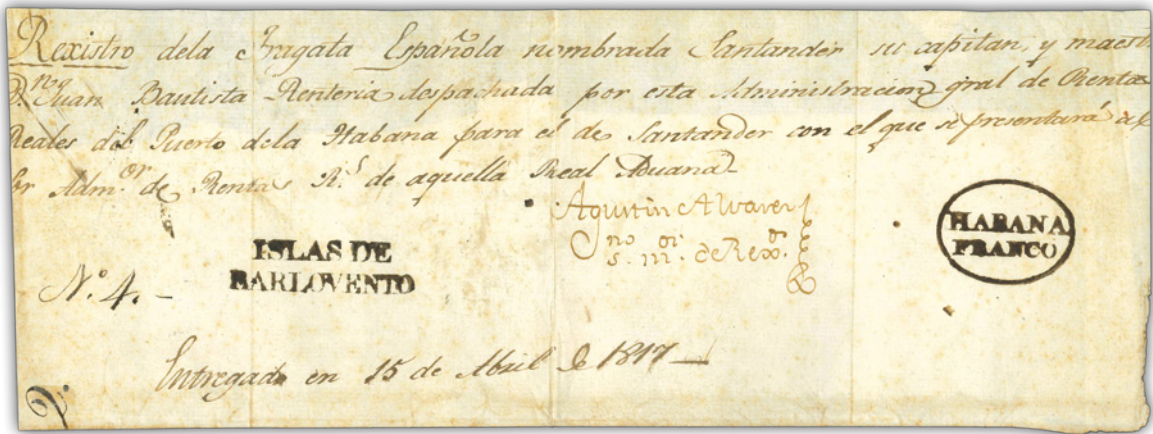 Rexistro dela Fragata Española nombrada Santander su capitan, y maest
D.n Juan Bautista Renteria despachada por esta Administracion gral de Rentas
Reales del Puerto dela Habana para el de Santander con el que se presentará al
Sr Adm.or de Rentas R.s de aquella Real Aduana
Agustin Alvarez
no or
s. m. de Rex.o
HABANA
FRANCO
ISLAS DE
BARLOVENTO
N.o 4. -
Entregado en 15 de Abril de 1817 —